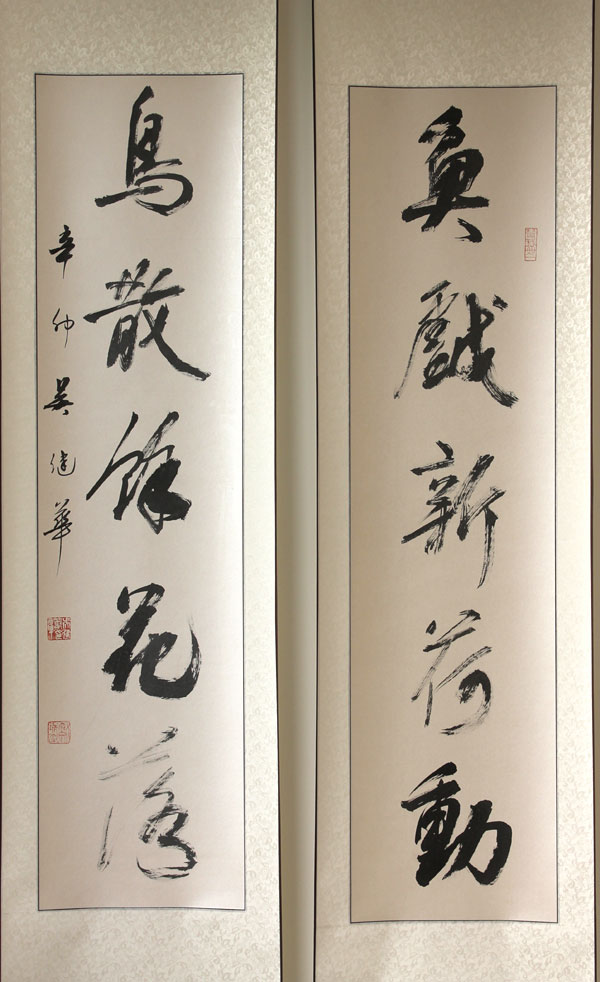 魚戲新荷動
鳥散餘花落
辛卯吳健華